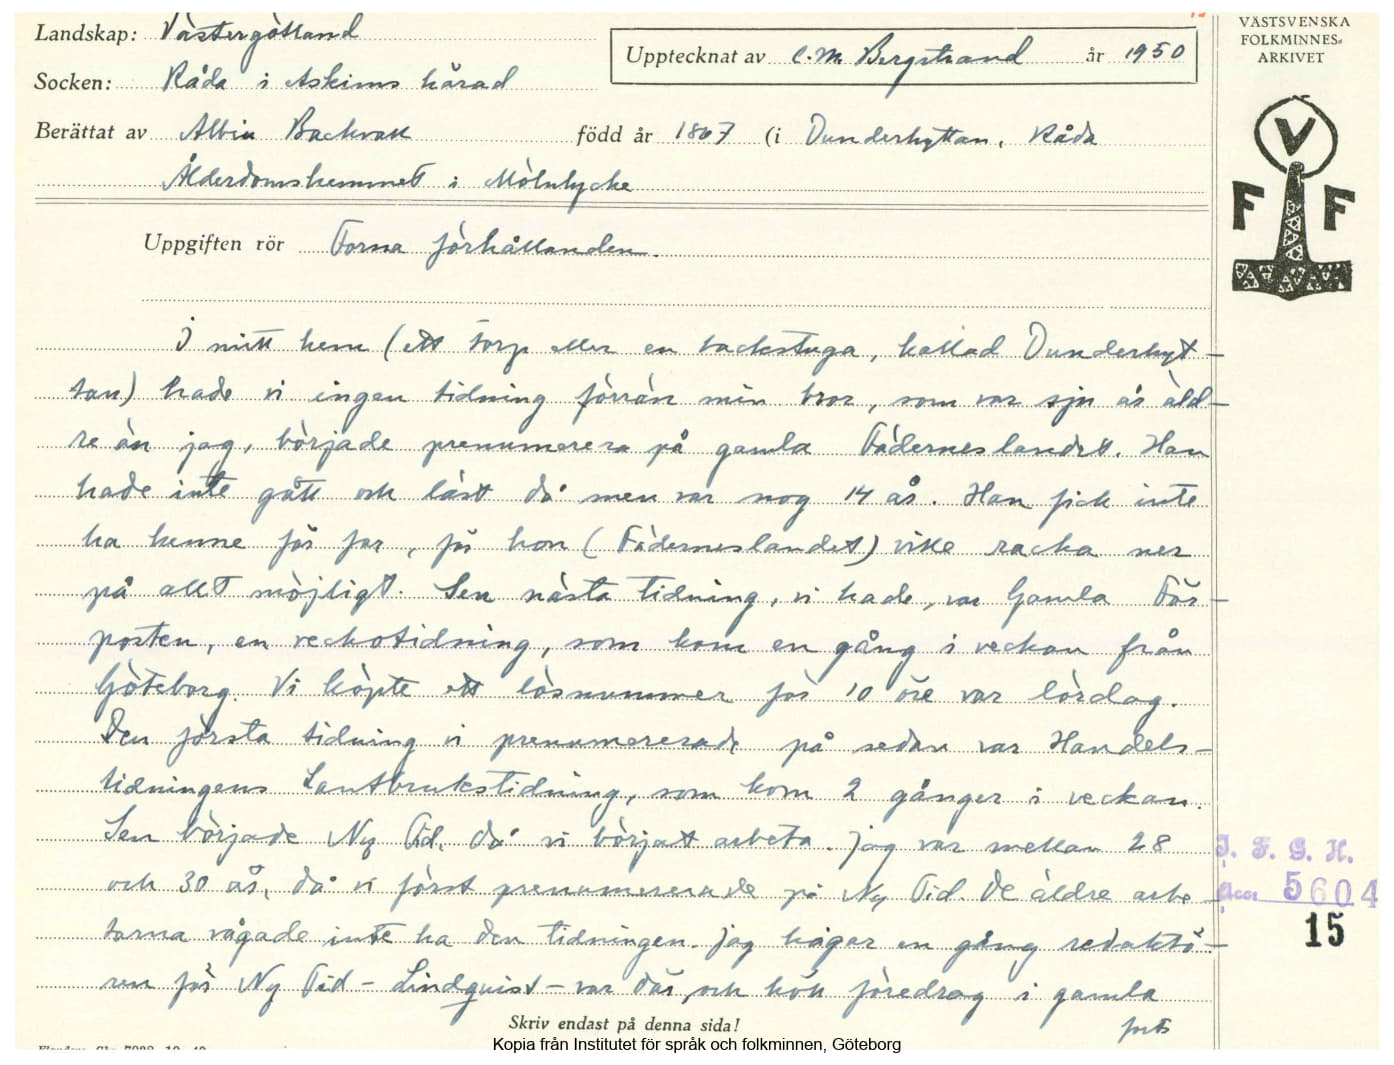 Landskap: Västergötland
Upptecknat av C.M. Bergstrand år 1950
VÄSTSVENSKA
FOLKMINNES-
ARKIVET
Socken: Råda i Askims härad
Berättat av Albin Backvall född år 1867 (i Dunderhyttan, Råda
Ålderdomshemmet i Mölnlycke
V
F F
Uppgiften rör Forna förhållanden.
I mitt hem (ett torp eller en backstuga, kallad Dunderhyt-
tan) hade vi ingen tidning förrän min bror, som var sju år äld-
re än jag, började prenumerera på gamla Fäderneslandet. Han
hade inte gått och läst då men var nog 14 år. Han fick inte
ha henne för far, för hon (Fäderneslandet) ville racka ner
på allt möjligt. Sen nästa tidning, vi hade, var Gamla För-
posten, en veckotidning, som kom en gång i veckan från
Göteborg. Vi köpte ett lösnummer för 10 öre var lördag.
Den första tidning vi prenumererade på sedan var Handels-
tidningens Lantbrukstidning, som kom 2 gånger i veckan.
Sen började Ny Tid, då vi börjat arbeta. Jag var mellan 28
och 30 år, då vi först prenumererade på Ny Tid. De äldre arbe-
tarna vågade inte ha den tidningen. Jag hågar en gång redaktö-
ren för Ny Tid - Lindquist - var där, och höll föredrag i gamla
forts
I. F. G. H.
Acc. 5604
15
Skriv endast på denna sida!
Kopia från Institutet för språk och folkminnen, Göteborg